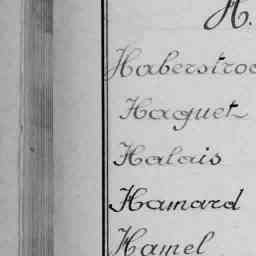 H.
Haberstroc
Haguet
Halais
Hamard
Hamel